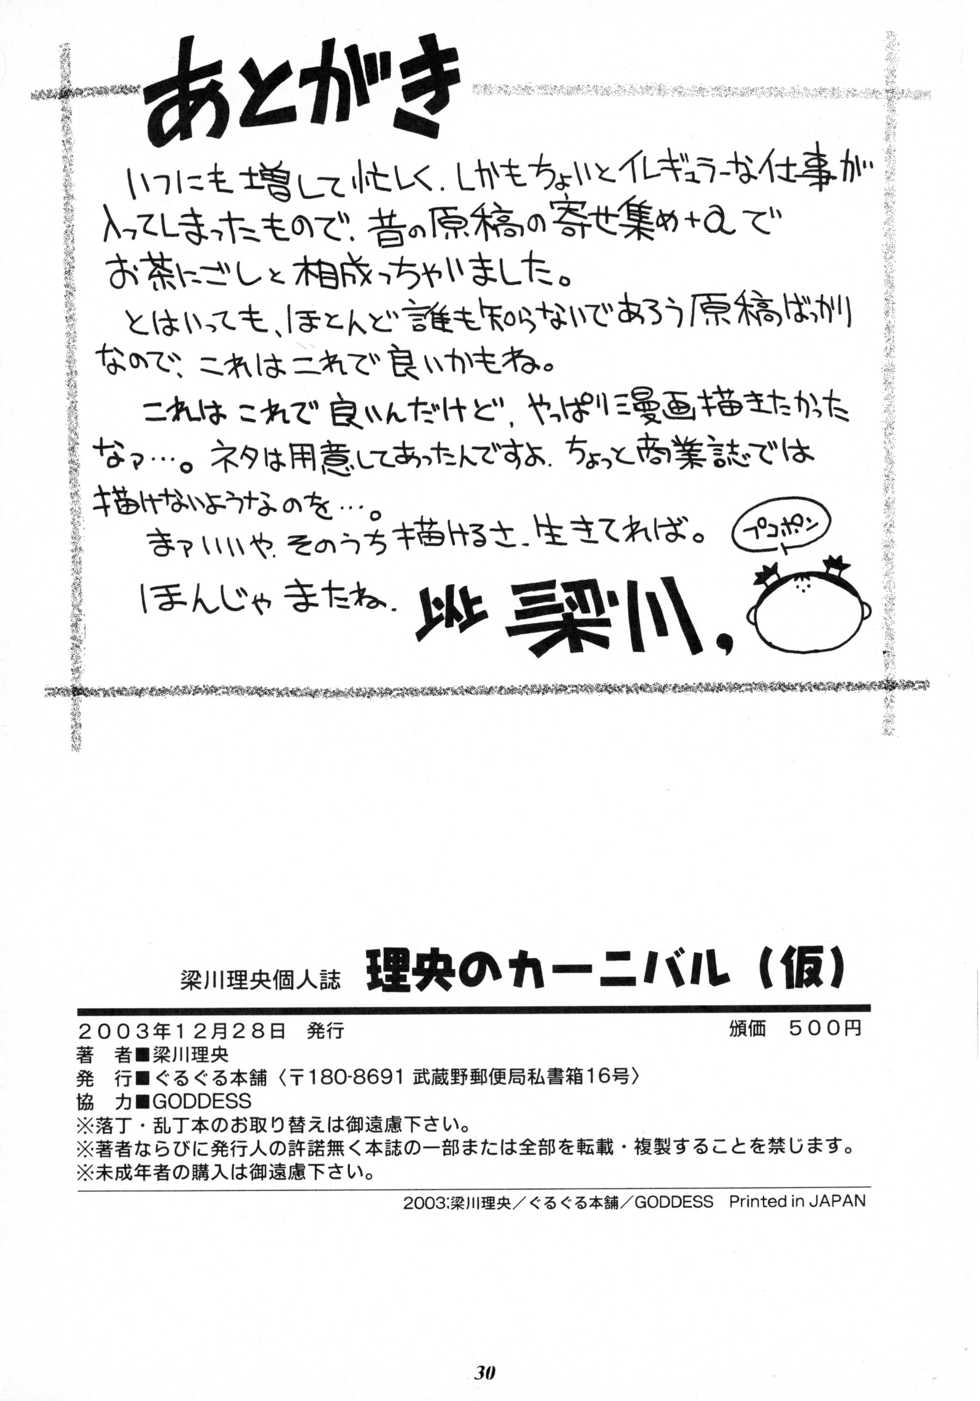 あとがき
いつにも増して忙しく、しかもちょいとイレギュラーな仕事が
入ってしまったもので、昔の原稿の寄せ集め+αで
お茶にごしと相成っちゃいました。
とはいっても、ほとんど誰も知らないであろう原稿ばっかり
なので、これはこれで良いかもね。
これはこれで良いんだけど、やっぱり漫画描きたかった
なァ…。ネタは用意してあったんですよ、ちょっと商業誌では
描けないようなのを…。
まァいいや、そのうち描けるさ、生きてれば。
プコポン
ほんじゃ またね、
梁川、
梁川理央個人誌 理央のカーニバル(仮)
2003年12月28日 発行 頒価 500円
著 者■梁川理央
発 行■ぐるぐる本舗〈〒180-8691 武蔵野郵便局私書箱16号〉
協 力■GODDESS
※落丁・乱丁本のお取り替えは御遠慮下さい。
※著者ならびに発行人の許諾無く本誌の一部または全部を転載・複製することを禁じます。
※未成年者の購入は御遠慮下さい。
2003:梁川理央/ぐるぐる本舗/GODDESS Printed in JAPAN
30